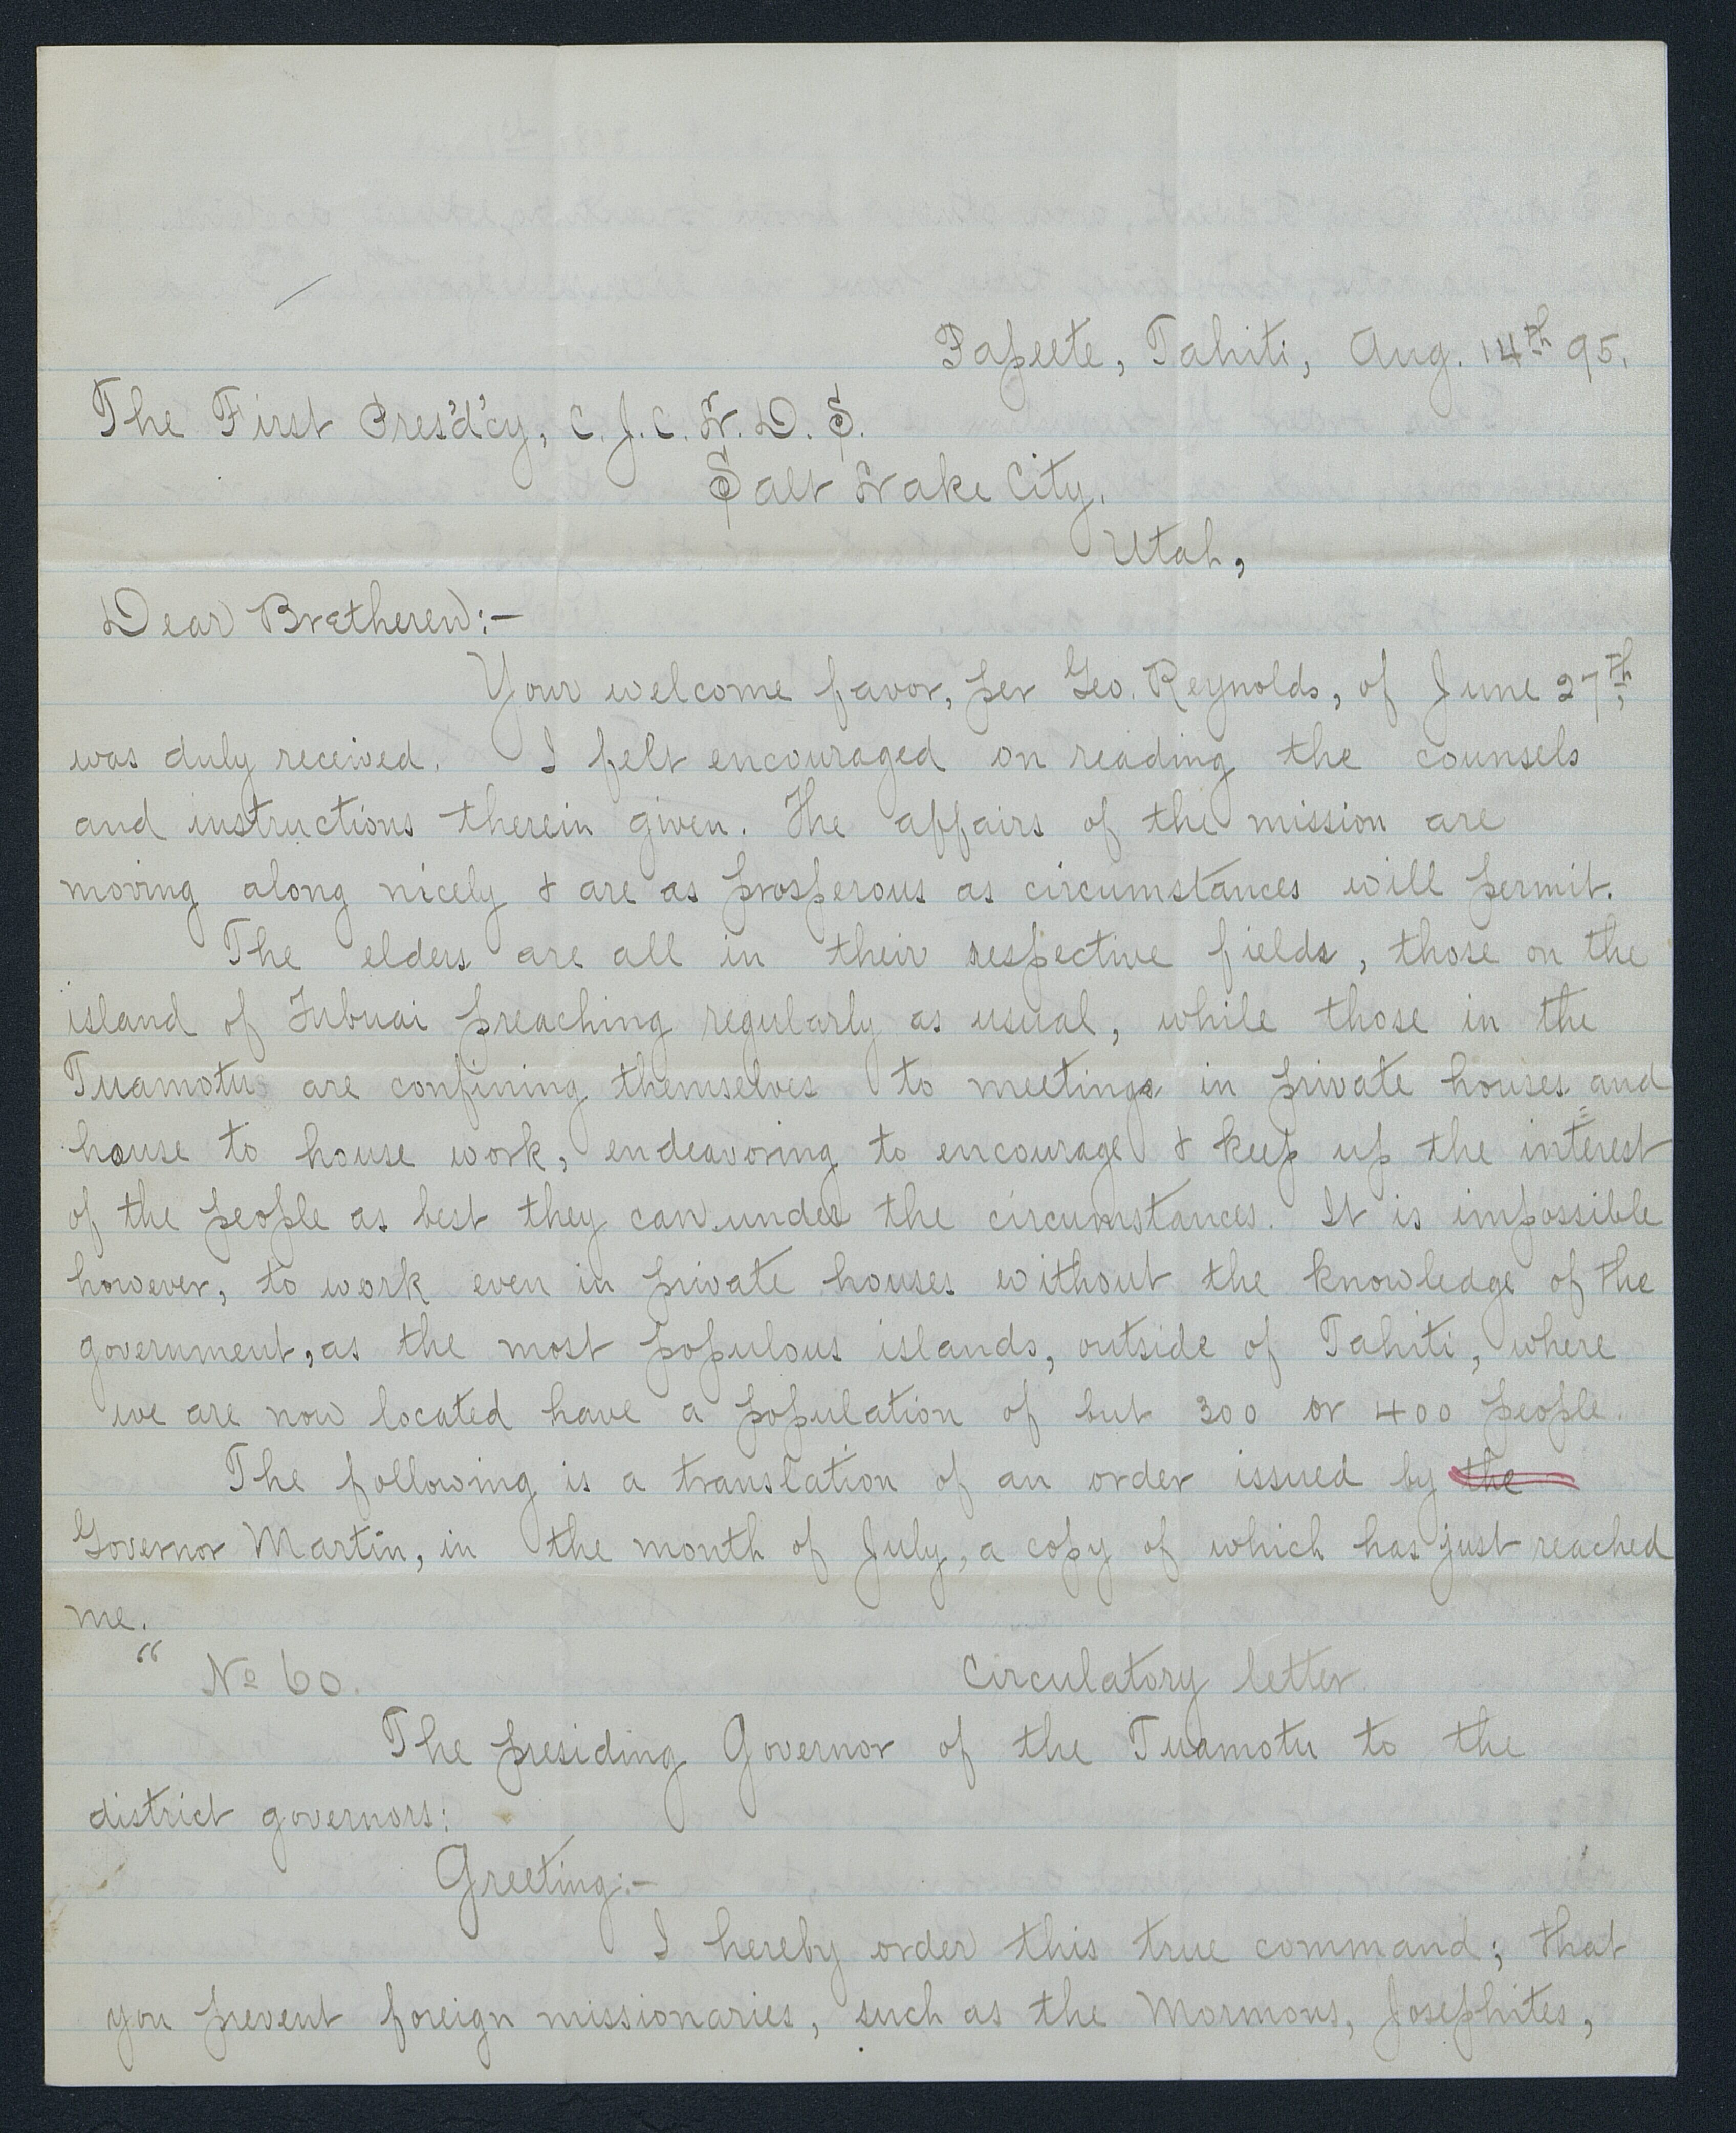 Papeete, Tahiti, Aug. 14th 95.
The First Pres'd'cy, C. J. C. L. D. S.
Salt Lake City.
Utah,
Dear Bretheren:-
Your welcome favor, per Geo. Reynolds, of June 27th,
was duly received. I felt encouraged on reading the counsels
and instructions therein given. The affairs of the mission are
moving along nicely & are as prosperous as circumstances will permit.
The elders are all in their respective fields, those on the
island of Tubuai preaching regularly as usual, while those in the
Tuamotus are confining themselves to meetings in private houses and
house to house work, endeavoring to encourage & keep up the interest
of the people as best they can under the circumstances. It is impossible
however, to work even in private houses without the knowledge of the
government, as the most populous islands, outside of Tahiti, where
we are now located have a population of but 300 or 400 people.
The following is a translation of an order issued by the
Governor Martin, in the month of July, a copy of which has just reached
me.
" No 60. Circulatory letter.
The presiding Governor of the Tuamotu to the
district governors:
Greeting:-
I hereby order this true command; that
you prevent foreign missionaries, such as the Mormons, Josephites,